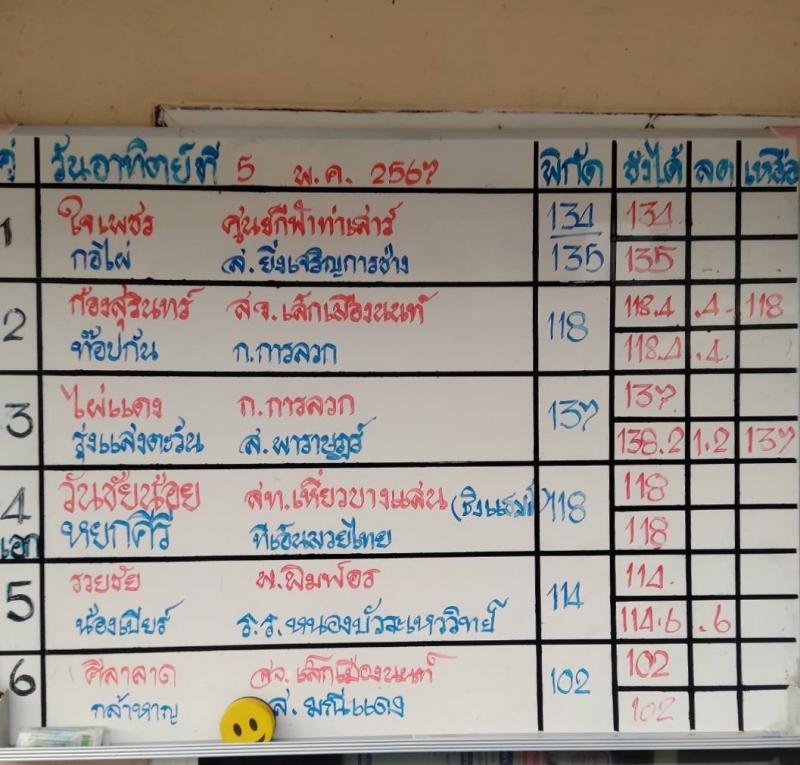 คู่ วันอาทิตย์ที่ 5 พ.ค. 2567 พิกัด ชั่งได้ ลด เหลือ
1 ใจเพชร ศูนย์กีฬาท่าเสาร์ 134 134
กอไผ่ ส.ยิ่งเจริญการช่าง 135 135
2 ก้องสุรินทร์ สจ.เล็กเมืองนนท์ 118 118.4 .4 118
ท๊อปกัน ก.การลวก 118.4 .4
3 ไผ่แดง ก.การลวก 137 137
รุ่งแสงตะวัน ส.พาราษฎร์ 138.2 1.2 137
4 วันชัยน้อย สท.เหี่ยวบางแสน 118 118
เอก หยกคีรี ทีเอ็นมวยไทย 118
5 รวยชัย พ.พิมพ์อร 114 114
น้องเบียร์ ร.ร.หนองบัวละเหววิทย์ 114.6 .6
6 ศิลาลาด สจ.เล็กเมืองนนท์ 102 102
กล้าหาญ ส.มณีแดง 102